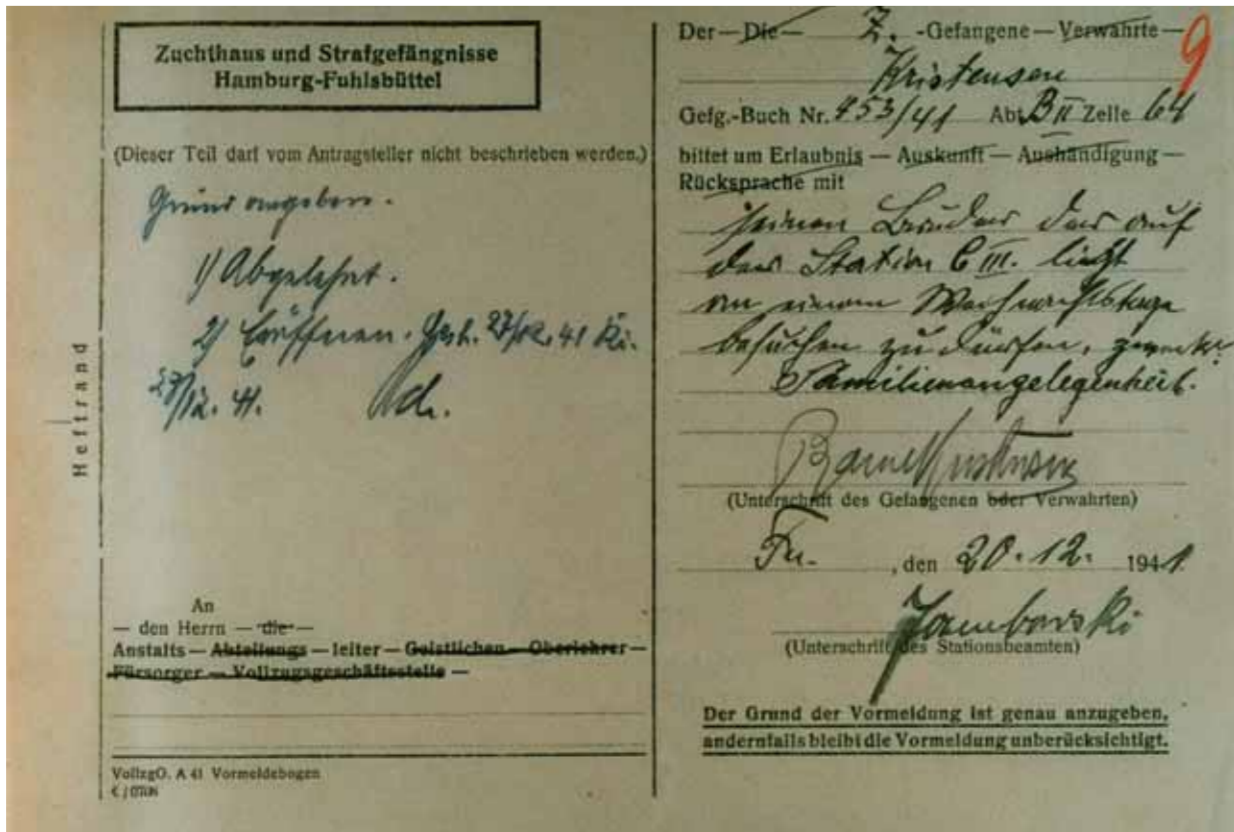 Zuchthaus und Strafgefängnisse
Hamburg-Fuhlsbüttel
(Dieser Teil darf vom Antragsteller nicht beschrieben werden.)
Grund angeben.
1) Abgelehnt.
2) Eröffnen. Gesch. 27/12. 41 Ki.
27/12. 41.
Heftrand
An
— den Herrn — die —
Anstalts — Abteilungs — leiter — Geistlichen — Oberlehrer —
Fürsorger — Vollzugsgeschäftsstelle —
VollzgO. A 41 Vormeldebogen
Der — Die — Z. -Gefangene — Verwahrte —
9
Kristensen
Gefg.-Buch Nr. 453/41 Abt. B II Zelle 64
bittet um Erlaubnis — Auskunft — Aushändigung —
Rücksprache mit
seinen Bruder der auf
der Station C III. liegt
an einem Weihnachtstage
besuchen zu dürfen, zwecks
Familienangelegenheit.
(Unterschrift des Gefangenen oder Verwahrten)
Fu. , den 20. 12. 1941
(Unterschrift des Stationsbeamten)
Der Grund der Vormeldung ist genau anzugeben,
andernfalls bleibt die Vormeldung unberücksichtigt.